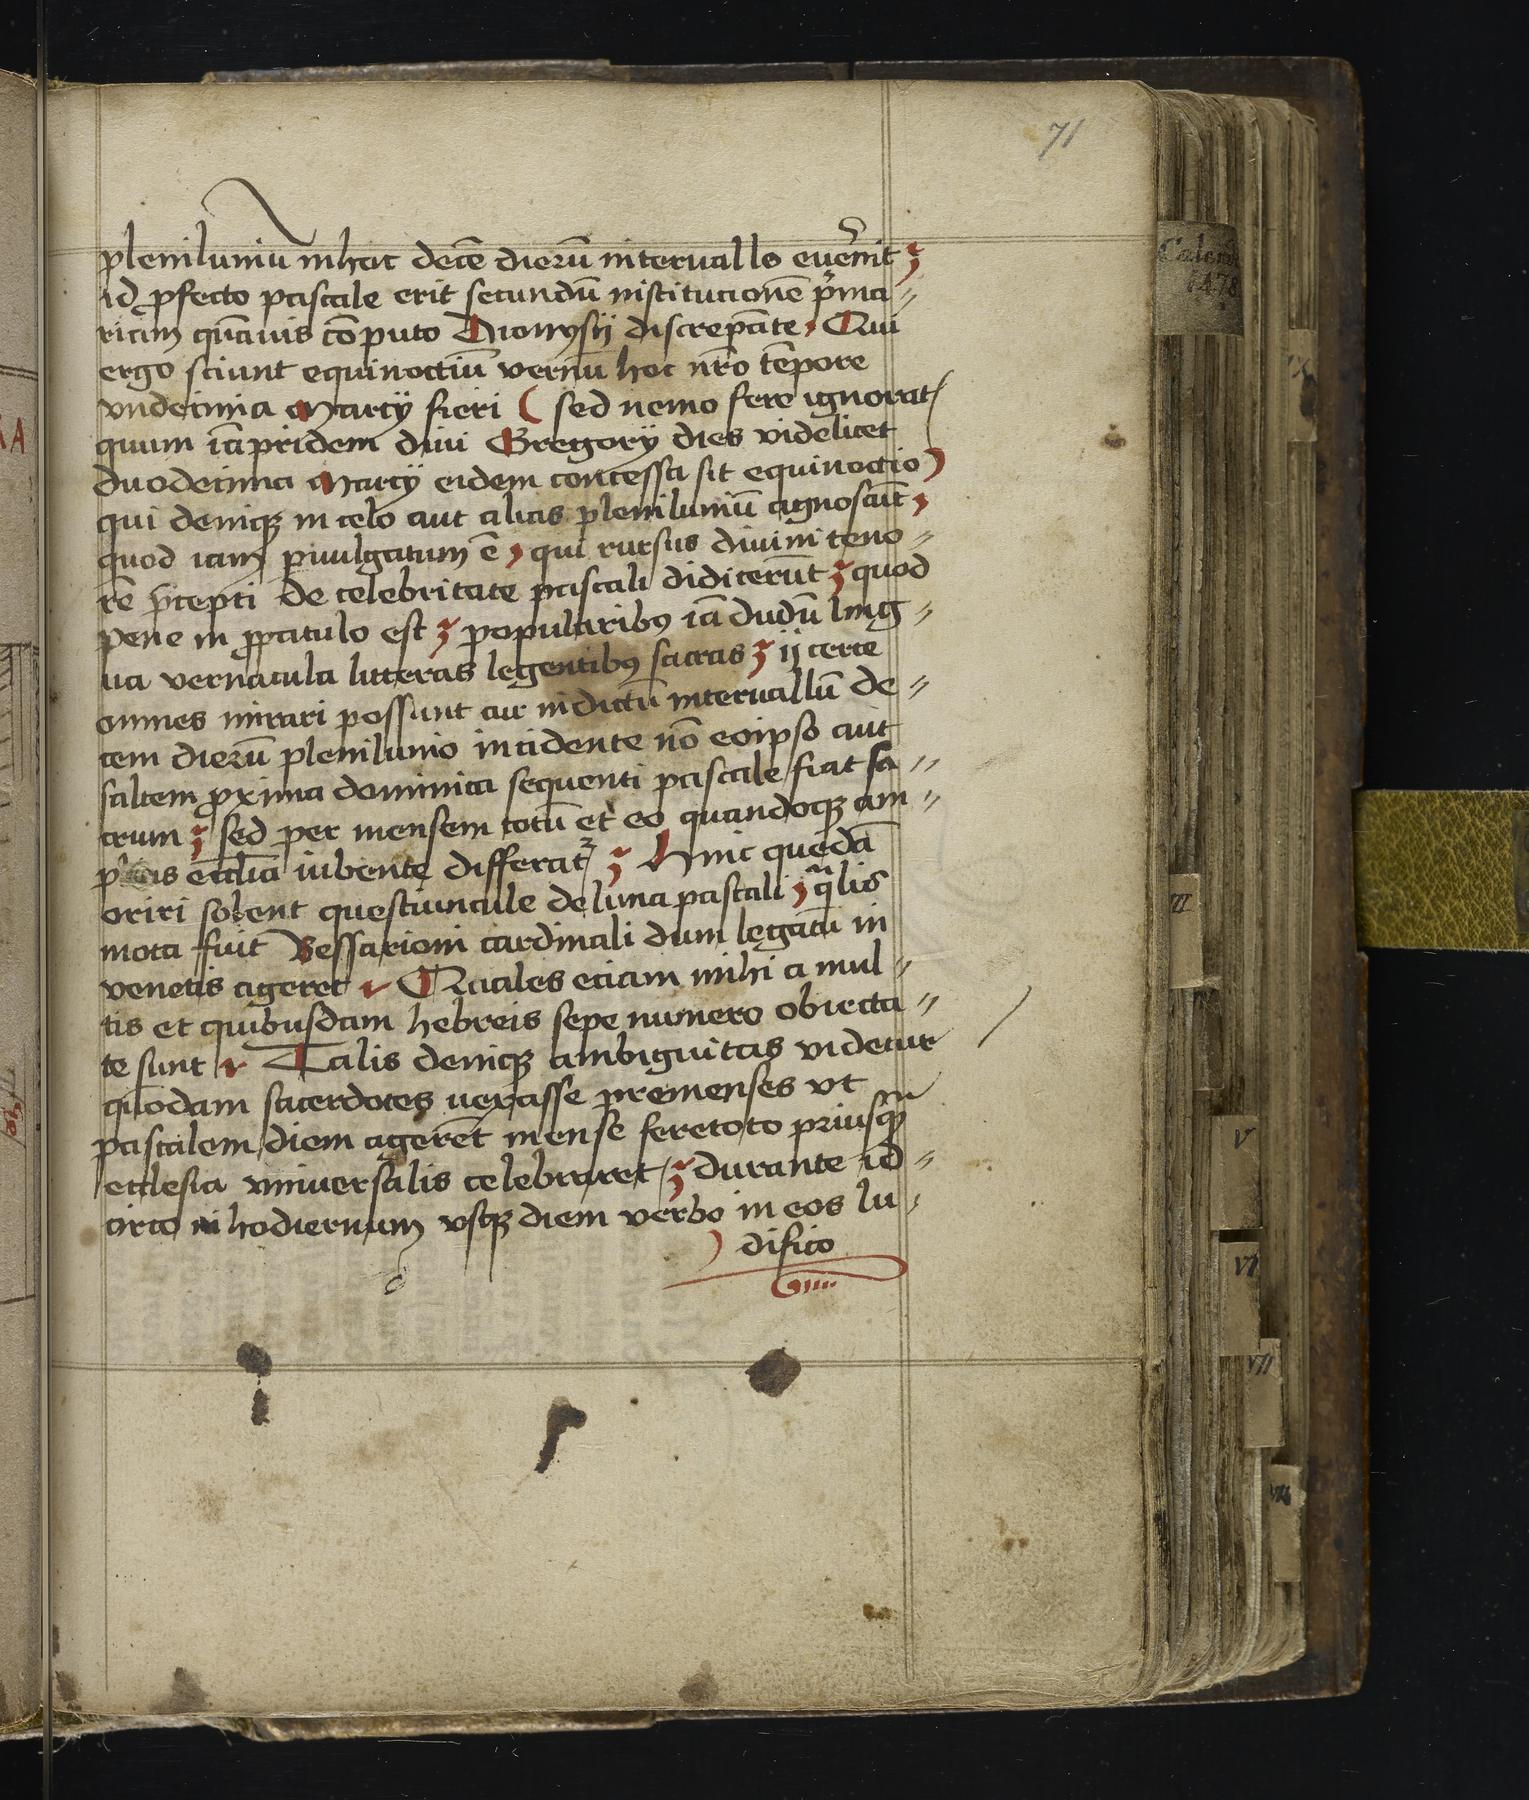 71
pleniluniū in hac decē dierū intervallo evēnit
id ꝓfecto pascale erit secundū institucionē pͥma//
riam quāuis cōputo Dionysij discrepāte, Qui
ergo sciunt equinoctiū vernū hoc nr̄o tēpore
vndecima Marcij fieri ( sed nemo fere ignorat
quum iāpridem diui Gregorij dies videlicet
duodecima Marcij eidem concessa sit equinoctio)
qui deniqꝫ in celo aut alias pleniluniū agnoscūt,
quod iam puulgatum ē, qui rursus diuini teno//
rē p̄cepti de celebritate pascali didicerūt quod
pene in ꝓpatulo est popularibꝰ iādudū ling//
ua vernacula litteras legentibꝰ sacras ij certe
omnes mirari possunt cur in dictū intervallū de//
cem dierū plenilunio incidente nō eoipso aut
saltem ꝓxima dominica sequenti pascale fiat sa//
crum sed per mensem totū et eo quandoqꝫ am//
ecclīa iubente differat Hinc quedā
oriri solent questiuncule de luna pascali, qͣlis
mota fuit Bessarioni cardinali dum legatū in
venetis ageret Tales eciam mihi a mul//
tis et quibusdam hebreis sepe numero obiecta//
te sunt Talis deniqꝫ ambiguitas videtur
quodam sacerdotes vexasse premenses vt
pascalem diem agerēt mense feretoto priusqͣꝫ
ecclesia vniuersalis celebraret durante id//
circo in hodiernum vsqꝫ diem verbo in eos lu//
difico
Calend
1478
IX
III
IV
V
VI
VII